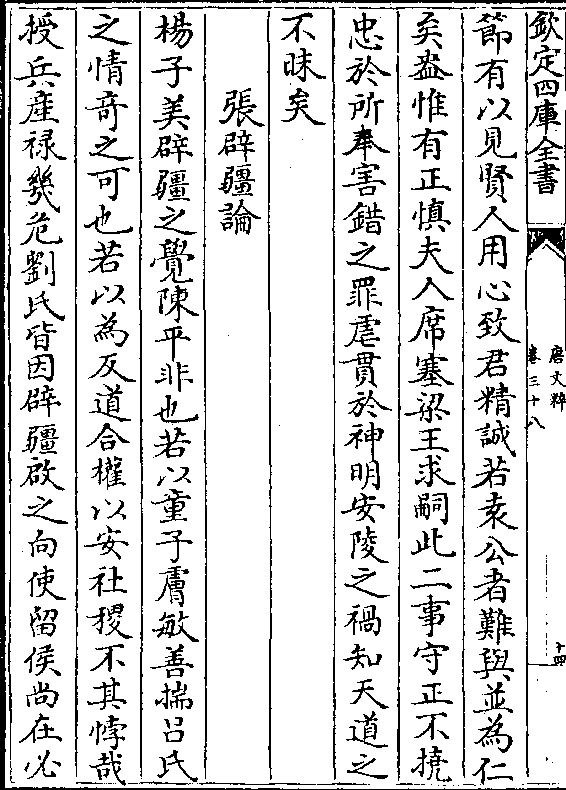 欽定四庫全書
唐文粹
卷三十八
十四
節有以見賢人用心致君精誠若袁公者難與並為仁
矣盎惟有正慎夫人席塞梁王求嗣此二事守正不撓
忠於所奉害錯之罪虐貫於神明安陵之禍知天道之
不昧矣
張辟疆論
楊子美辟疆之覺陳平非也若以童子膚敏善揣呂氏
之情竒之可也若以為反道合權以安社稷不其悖哉
授兵産禄幾危劉氏皆因辟疆啟之向使留侯尚在必